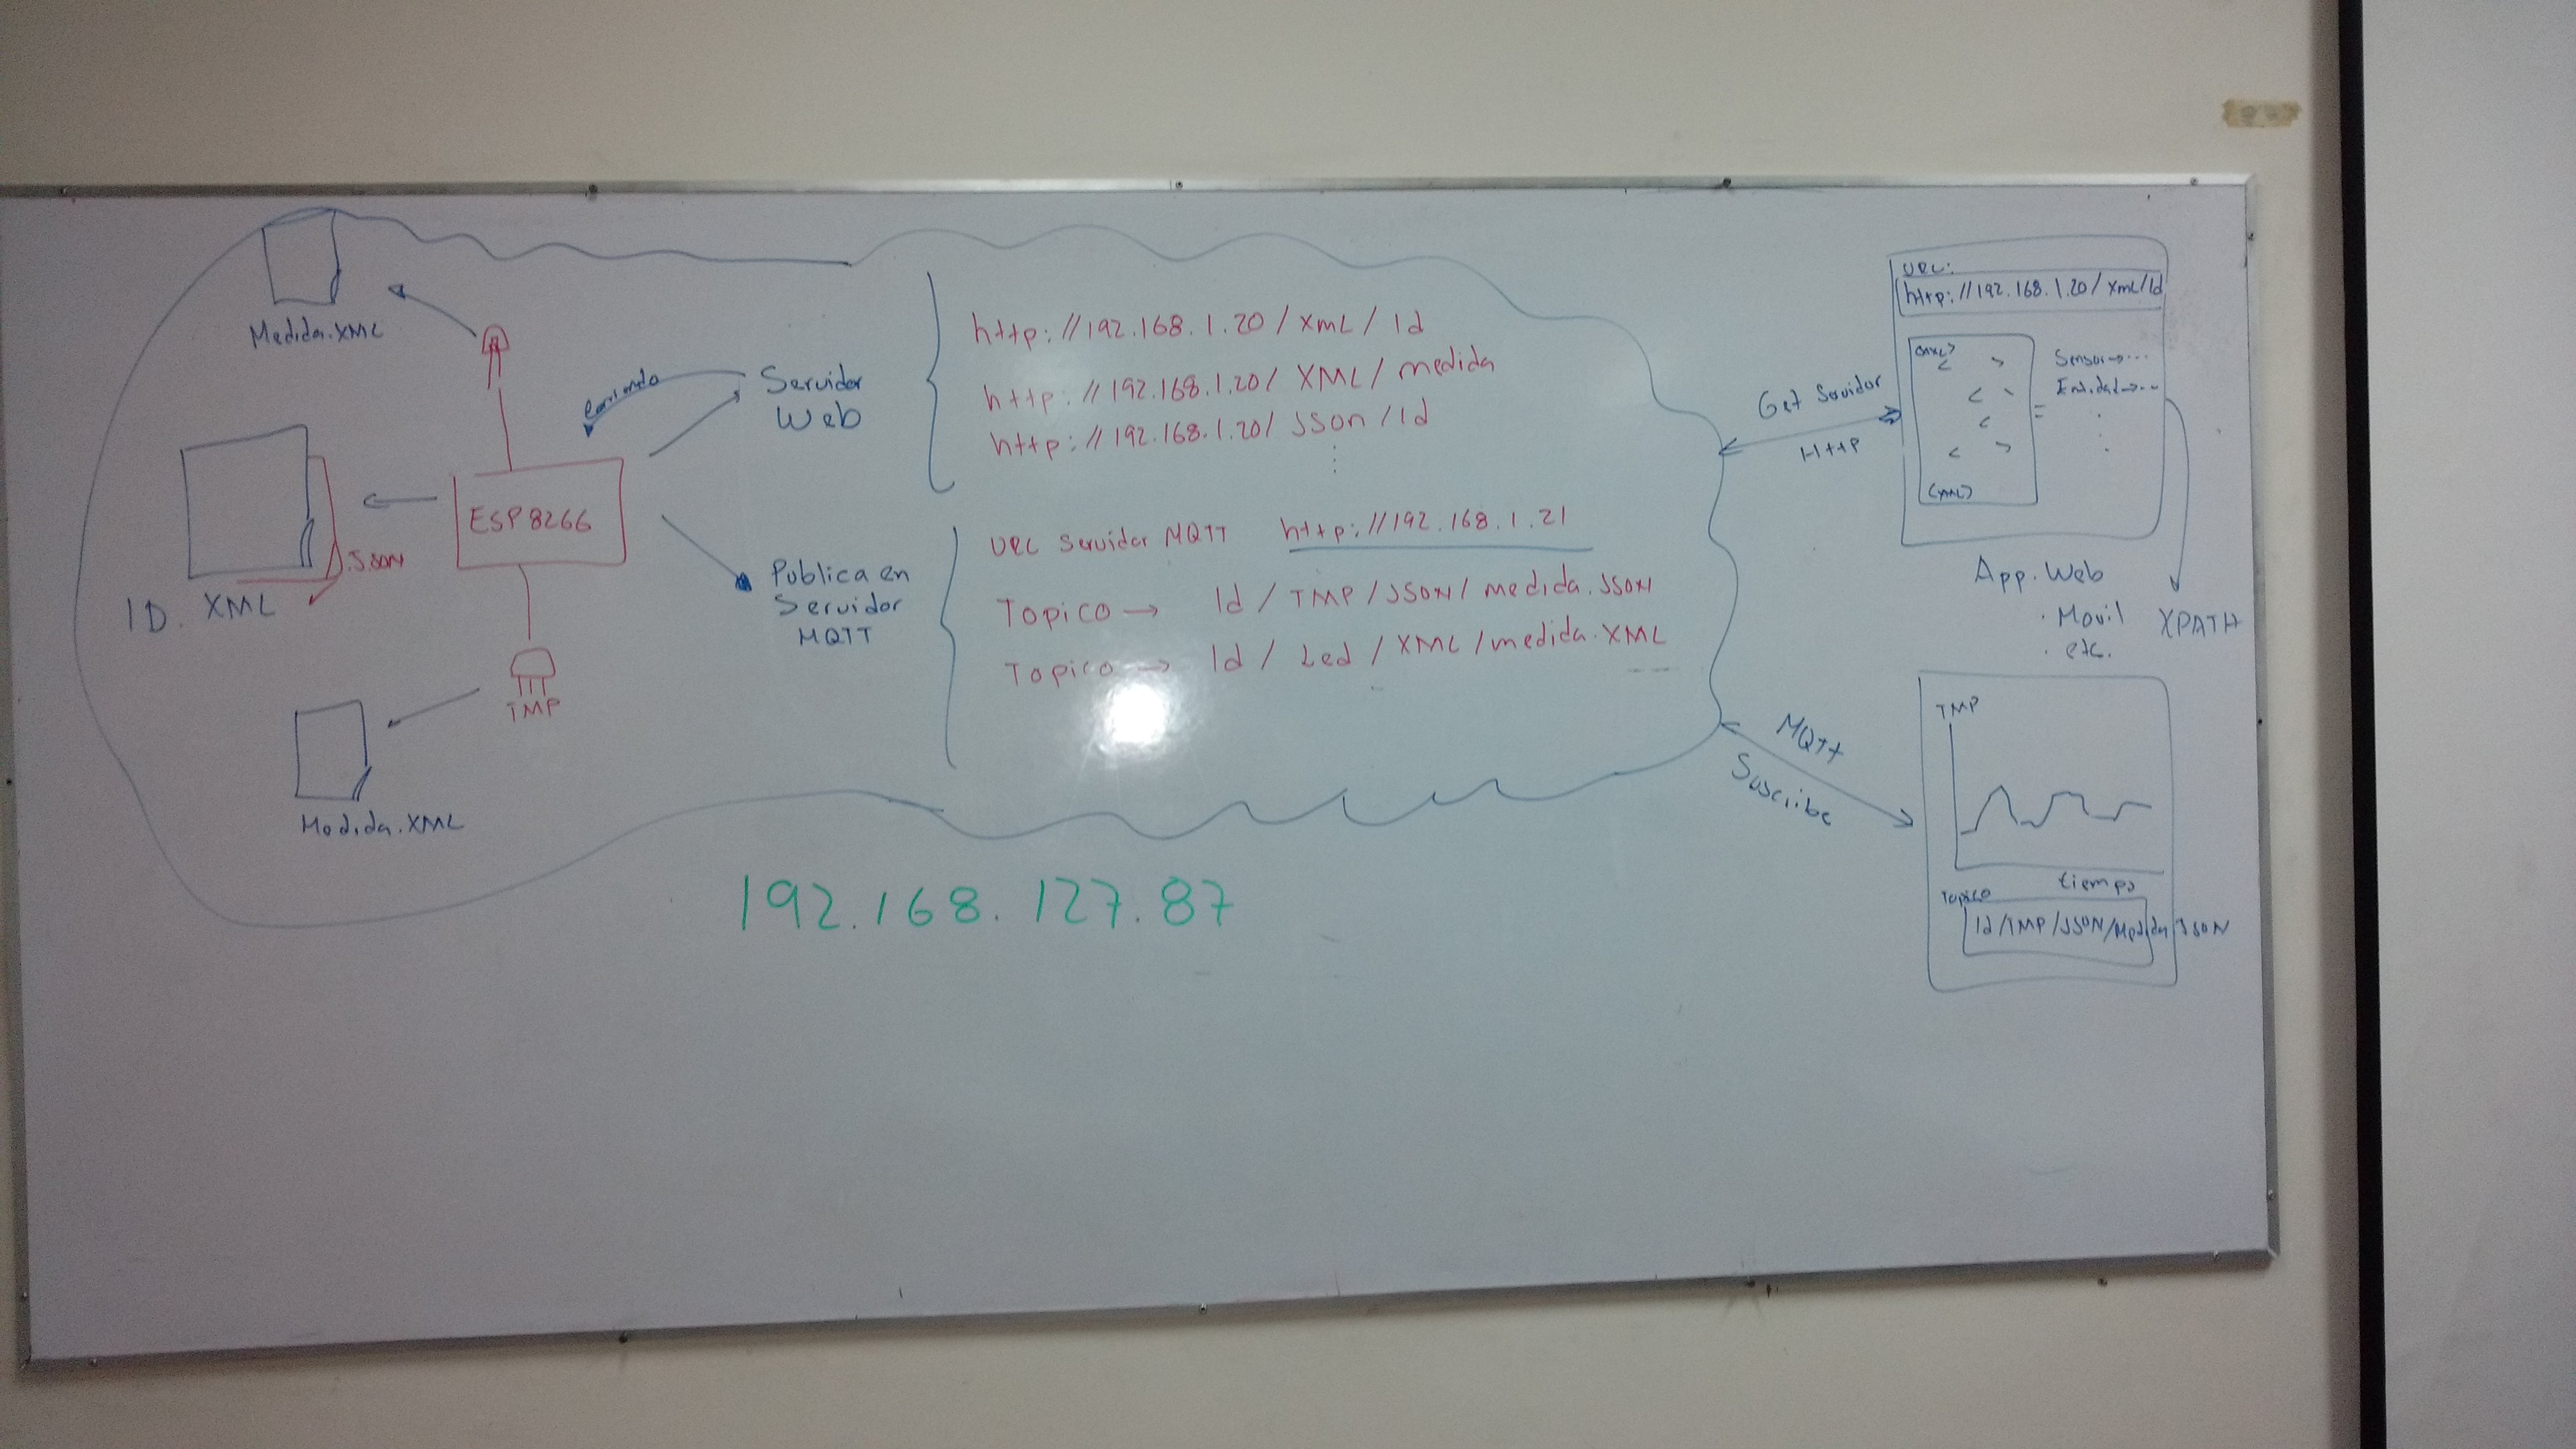 Medida.XML
ESP8266
.JSON
ID. XML
TMP
Medida.XML
Servidor
Web
Publica en
Servidor
MQTT
http://192.168.1.20/XML/Id
http://192.168.1.20/XML/medida
http://192.168.1.20/JSon/Id
URL Servidor MQTT http://192.168.1.21
Topico → Id/TMP/JSON/medida.JSON
Topico → Id/Led/XML/medida.XML
192.168.127.87
Get Servidor
Http
MQTT
Suscribe
URL:
http://192.168.1.20/XmL/Id
<XML>
Sensor→...
Entidad→...
=
<XML>
App.Web
. Movil
. etc.
XPATH
TMP
tiempo
Topico
Id/TMP/JSON/Medida JSON